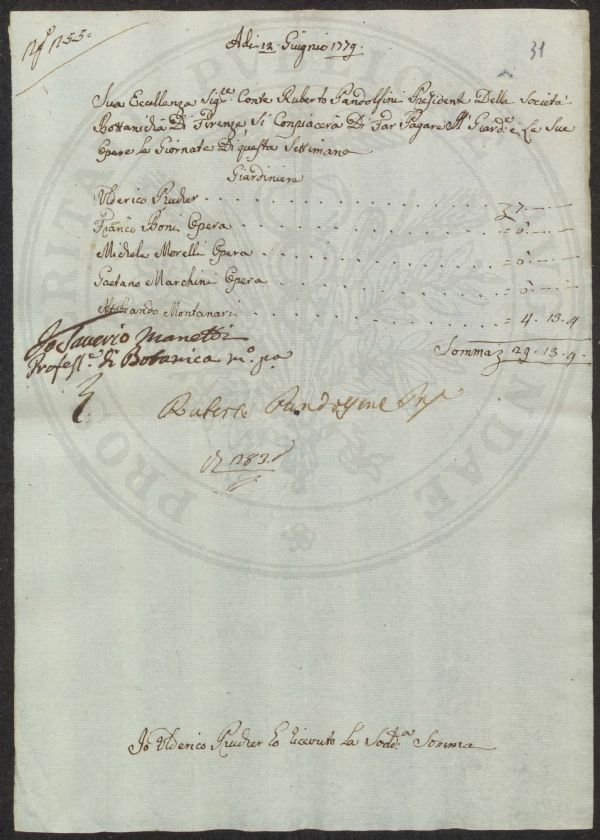 Adi 12 Giugnio 1779.
31
Sua Eccellanza Sig.re Conte Ruberto Pandolfini President Della Società
Bottanicha Di Firenze Si Conpiacerà Di Far Pagare Al Giard.e e Le Sue
Opere le Giornate Di questa Settimana
Giardiniere
Ulderico Prucher
Franco Boni Opera
Michele Morelli Opera
Gaetano Marchini Opera
Montanari = 4. 13. 4
Io Saverio Manetti
Profess.e di Botanica m.o p.a
Somma 29. 13. 4.
Ruberto Pandolfini
Io Ulderico Prucher ho ricevuto La Sodd.a Somma
PRO PUBLICAE